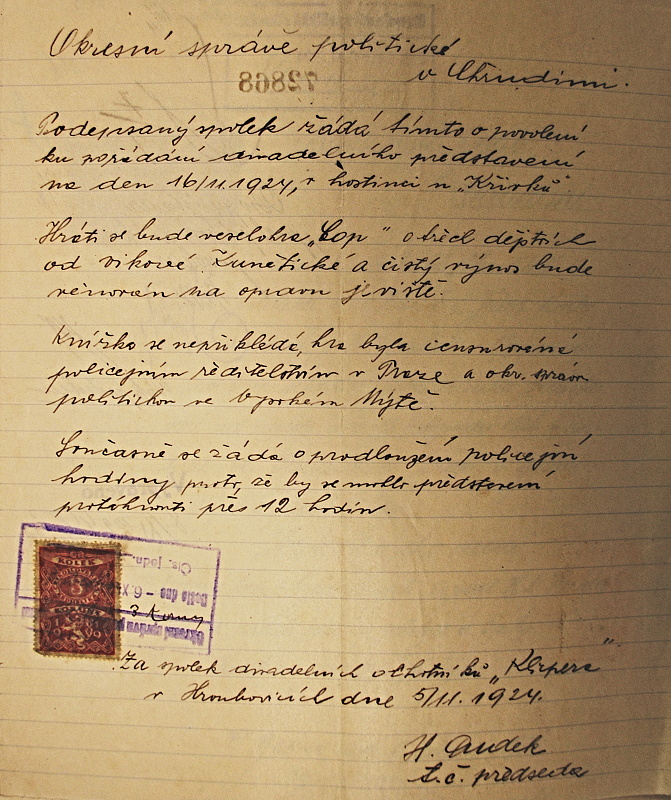 Okresní správě politické
v Chrudimi.
72868
Podepsaný spolek žádá tímto o povolení
ku pořádání divadelního představení
na den 16/11.1924, v hostinci u „Křivků".
Hráti se bude veselohra „Cop" o třech dějstvích
od Vikové Kunětické a čistý výnos bude
věnován na opravu jeviště.
Knížka se nepřikládá, hra byla censurována
policejním ředitelstvím v Praze a okr. správou
politickou ve Vysokém Mýtě.
Současně se žádá o prodloužení policejní
hodiny proto, že by se mohlo představení
protáhnouti přes 12 hodin.
KOLEK
Čís. jedn.
Došlo dne - 6. XI
3 Koruny
Okresní správa
Za spolek divadelních ochotníků „Klicpera"
v Hroubovicích dne 5/11. 1924.
předseda